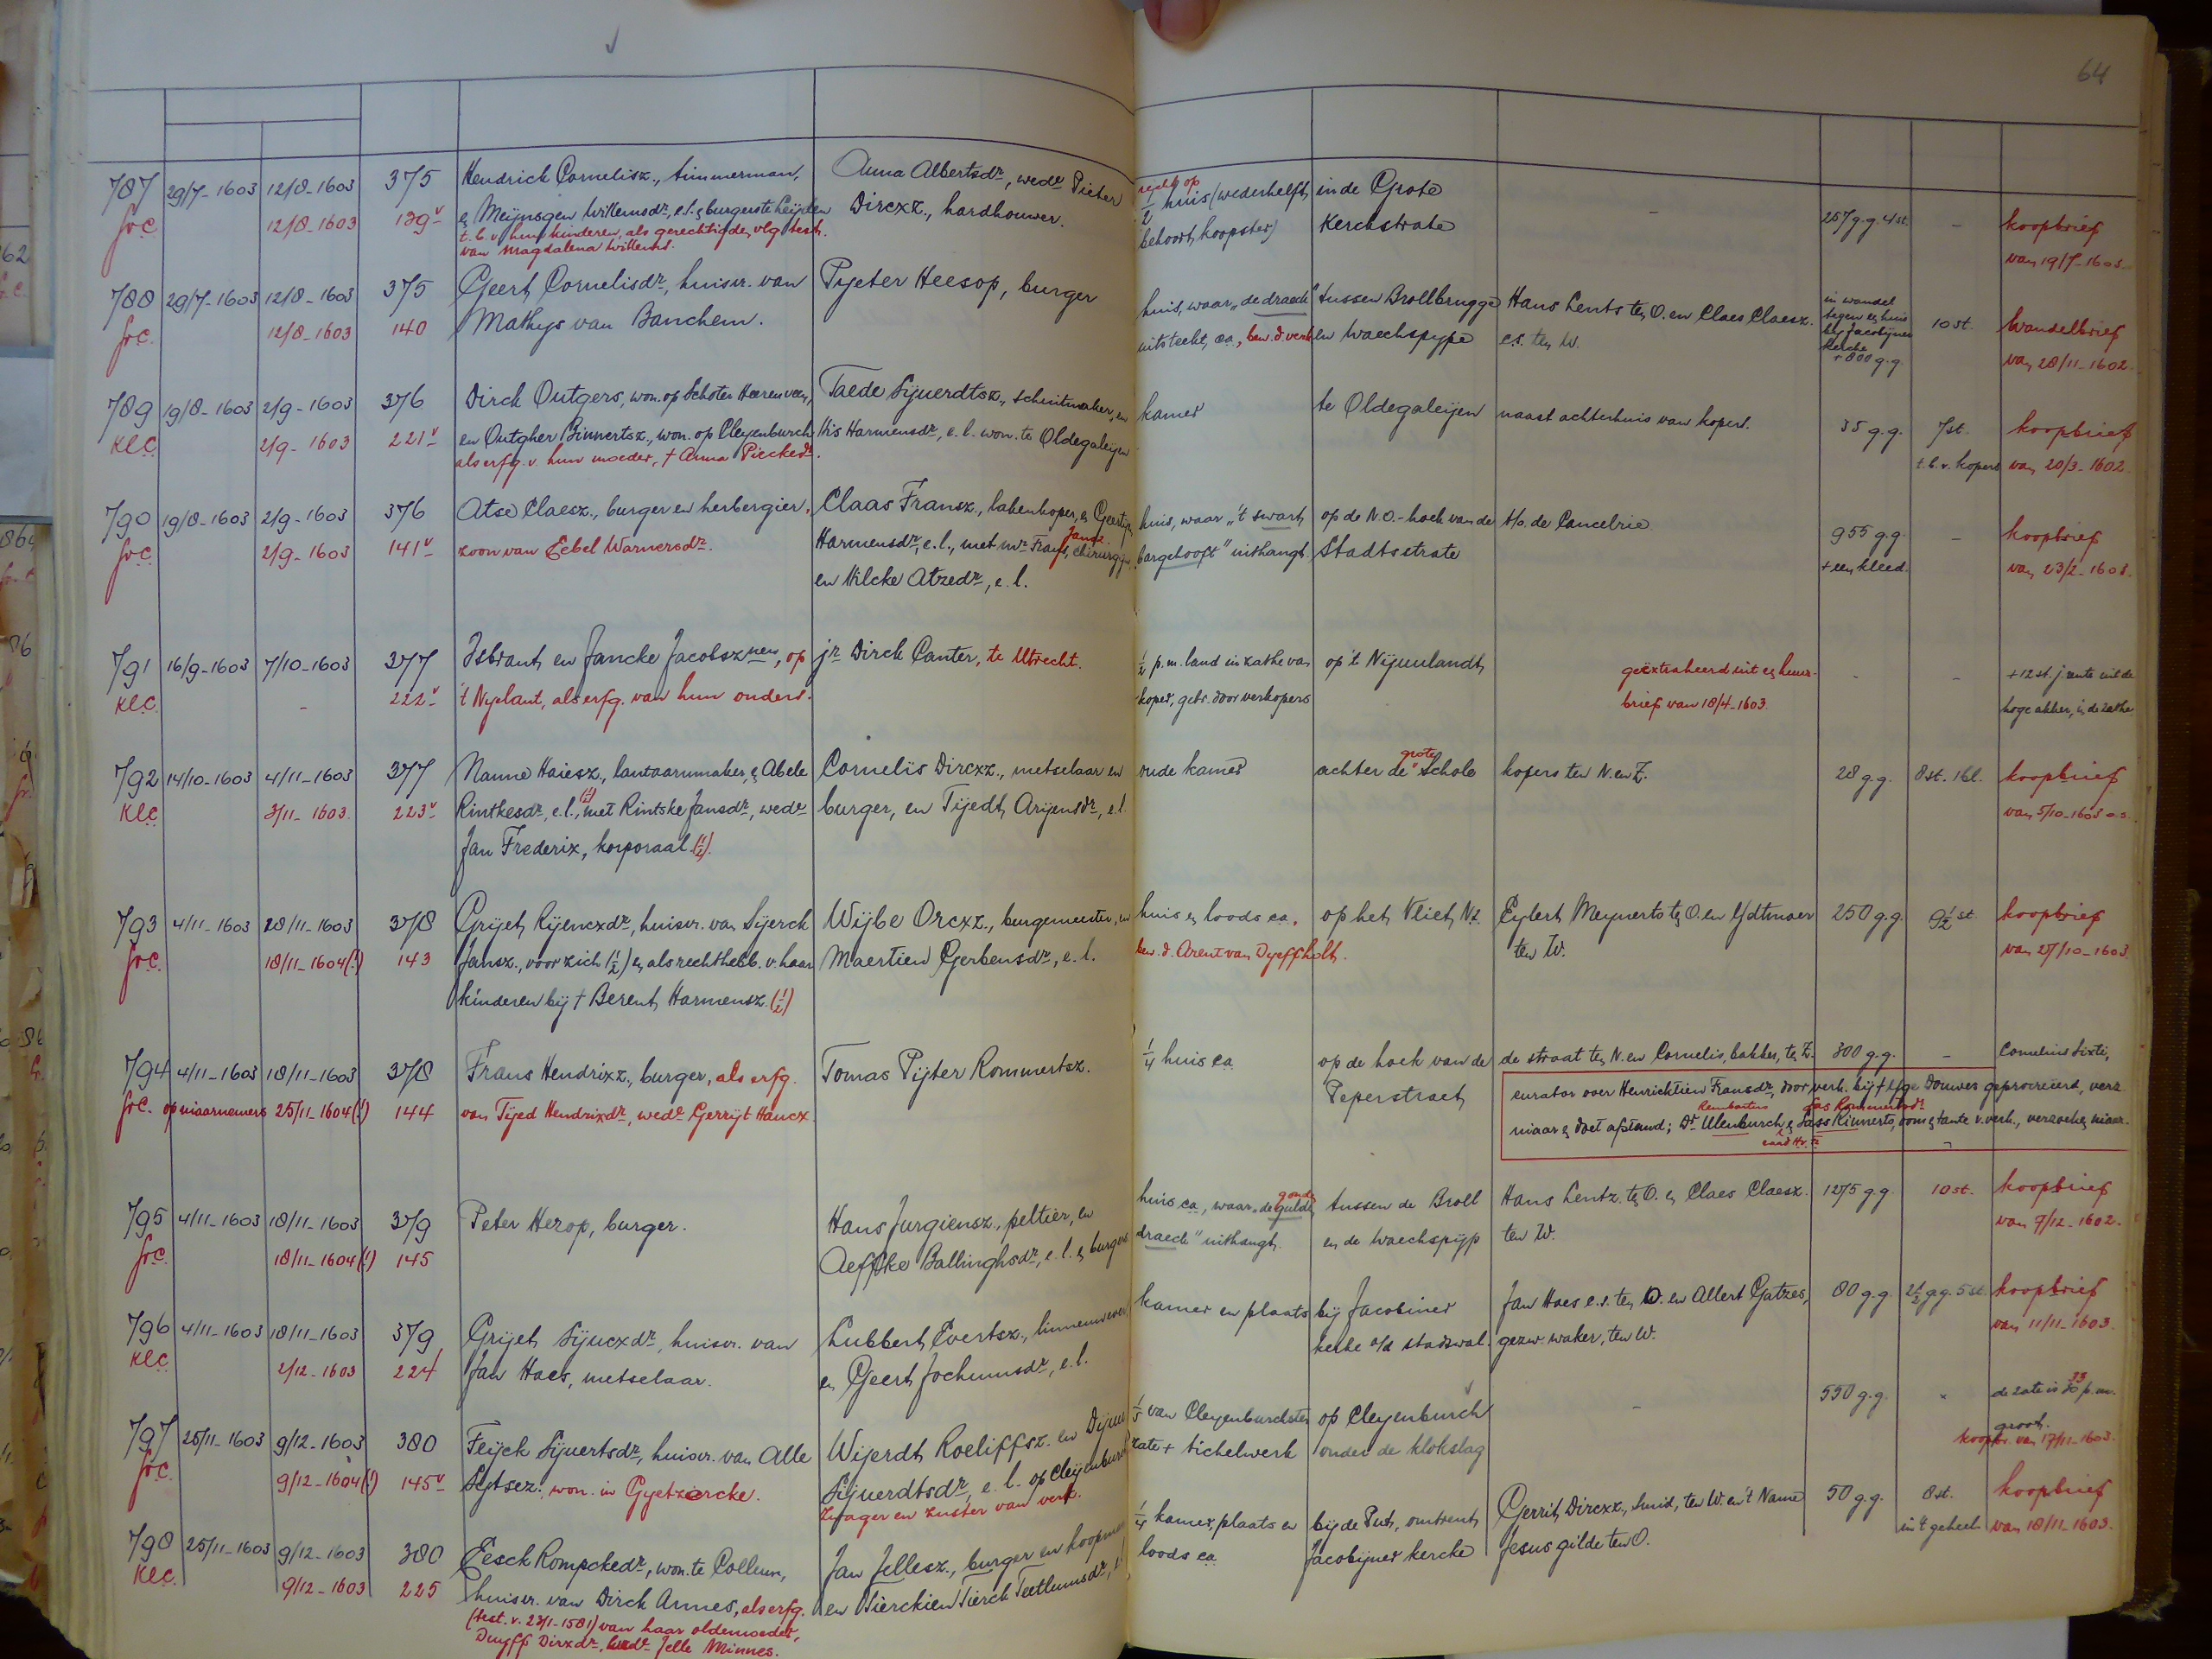 64
787 29/7-1603 12/8-1603 375 Hendrick Cornelisz., timmerman, Anna Albertsdr, wedr Pieter ½ huis (wederhelft in de Grote - 257 g.g. 4 st. - koopbrief
12/8-1603 139v & Meijnsgen Willemsdr, e.l. & burgers te Leijden Dircxz., hardhouwer. behoort koopster) Kerckstrate van 19/7-1603
t.b.v. hun kinderen, als gerechtigden vlg test.
van Magdalena Willems.
788 29/7-1603 12/8-1603 375 Geert Cornelisdr, huisvr. van Pyeter Heesop, burger huis, waar "de draeck" tussen Brollbrugge Hans Lents ten O. en Claes Claesz. in wandel
12/8-1603 140 Mathijs van Banchem. uitsteekt, ca, bew. d. verk. en Waechspype c.s. ten W. tegen een huis 10 st. Wandelbrief
bij Jacobijner
kercke
+ 800 g.g. van 28/11-1602
789 19/8-1603 2/9-1603 376 Dirck Outgers, won. op Schoter Heerenveen, Taede Sijuerdtsz., schuitmaker, en kamer te Oldegaleijen naast achterhuis van koper. 35 g.g. 7 st. koopbrief
KLC 2/9-1603 221v en Outgher Binnertsz., won. op Cleyenburch His Harmensdr, e.l. won. te Oldegaleijen t.b.v. kopers van 20/3-1602
als erfg. v. hun moeder, † Anna Pieckedr.
790 19/8-1603 2/9-1603 376 Atse Claesz., burger en herbergier, Claas Fransz., lakenkoper, & Geertje huis, waar "'t swart op de N.O.-hoek van de t/o. de Cancelrie 955 g.g. - koopbrief
2/9-1603 141v zoon van Eebel Warnersdr. Harmensdr, e.l., met mr Frans Jansz. chirurgijn, bargehooft" uithangt Stadtsstrate + een kleed. van 23/2-1603.
en Wilcke Atzedr, e.l.
791 16/9-1603 7/10-1603 377 Isbrant en Jancke Jacobsznen, op jr Dirck Canter, te Utrecht. ½ p.m. land in zathe van op 't Nijeunlandt geëxtraheerd uit een huur- - - + 12 st. j. rente uit de
KLC - 222v 't Nyelant, als erfg. van hun ouders. koper, gebr. door verkopers brief van 18/4-1603. hoge akker, in de zathe
792 14/10-1603 4/11-1603 377 Nanne Haiesz., lantaarnmaker, & Abele Cornelis Dircxz., metselaar en oude kamer achter de grote Schole kopers ten N. en Z. 28 g.g. 8 st. 1 bl. koopbrief
KLC 3/11-1603. 223v Rintkesdr, e.l., (½) met Rintske Jansdr, wedr burger, en Tijedt Arijensdr, e.l. van 5/10-1603 o.s.
Jan Frederix, korporaal (½).
793 4/11-1603 18/11-1603 378 Grijet Rijencxdr, huisvr. van Sijerck Wijbe Orcxz., burgemeester, en huis & loods ca. op het Vliet NZ. Eylert Meynerts ten O. en Ydtmaer 250 g.g. 9½ st. koopbrief
18/11-1604(!) 143 Jansz., voor zich (½) & als rechthebb. v. haar Maertien Gerbensdr, e.l. bew. d. Arent van Dyeffholt. ten W. van 27/10-1603.
kinderen bij † Berent Harmensz. (½)
794 4/11-1603 18/11-1603 378 Frans Hendrixz., burger, als erfg. Tomas Pijter Rommertsz. ¼ huis ca op de hoek van de de straat ten N. en Cornelis, bakker, ten Z. 300 g.g. - Cornelius Sixti,
op niaarnemers 25/11-1604(!) 144 van Tijed Hendrixdr, wedr Gerrijt Hancx. Peperstraet curator over Henrichtien Fransdr, door verk. bij † Ytge Douwes geprocreëerd, verz.
niaar & doet afstand; Dr Rombartus Ulenburch & Sass Rinnerts, Sas Rommertsdr oom & tante v. verk., verzoeken niaar.
raad Hv. Fr.
795 4/11-1603 18/11-1603 379 Peter Herop, burger. Hans Jurgiensz., peltier, en huis ca, waar "de gulde gouden tussen de Broll Hans Lentz. ten O. & Claes Claesz. 1275 g.g. 10 st. koopbrief
18/11-1604(!) 145 Aeffke Ballinghsdr, e.l. & burgers draeck" uithangt. en de Waechspijp ten W. van 9/12-1602.
796 4/11-1603 18/11-1603 379 Grijet Sijucxdr, huisvr. van Lubbert Evertsz., linnenwever, kamer en plaats bij Jacobiner Jan Haes c.s. ten O. en Allert Gatzes, 80 g.g. 2½ g.g. 5 st. koopbrief
KLC 2/12-1603 224 Jan Haes, metselaar. en Geert Jochumsdr, e.l. kerke a/d stadswal. gezw. waker, ten W. van 11/11-1603.
797 25/11-1603 9/12-1603 380 Feijck Sijuertsdr, huisvr. van Alle Wijerdt Roeliffsz. en Dijeuw ⅓ van Cleyenburchster op Cleyenburch - 550 g.g. - de zate is 33 p.m. groot.
9/12-1604(!) 145v Sytsez. won. in Gyetzercke. Sijuerdtsdr, e.l. op Cleijenburch zate + tichelwerk onder de klokslag koopbr. van 17/11-1603.
Zwager en zuster van verk.
798 25/11-1603 9/12-1603 380 Eesck Rompckedr, won. te Collum, Jan Jellesz., burger en koopman ¼ kamer, plaats en bij de Put, omtrent Gerrit Dircxz., smid, ten W. en 't Name 50 g.g. 8 st. koopbrief
KLC 9/12-1603 225 huisvr. van Dirck Annes, als erfg. en Tierckien Tierck Teetlumsdr, e.l. loods ca Jacobijner kercke Jesus gilde ten O. in 't geheel van 18/11-1603.
(test. v. 23/1-1581) van haar oldemoeder,
Duyff Dirxdr, wedr Jelle Minnes.